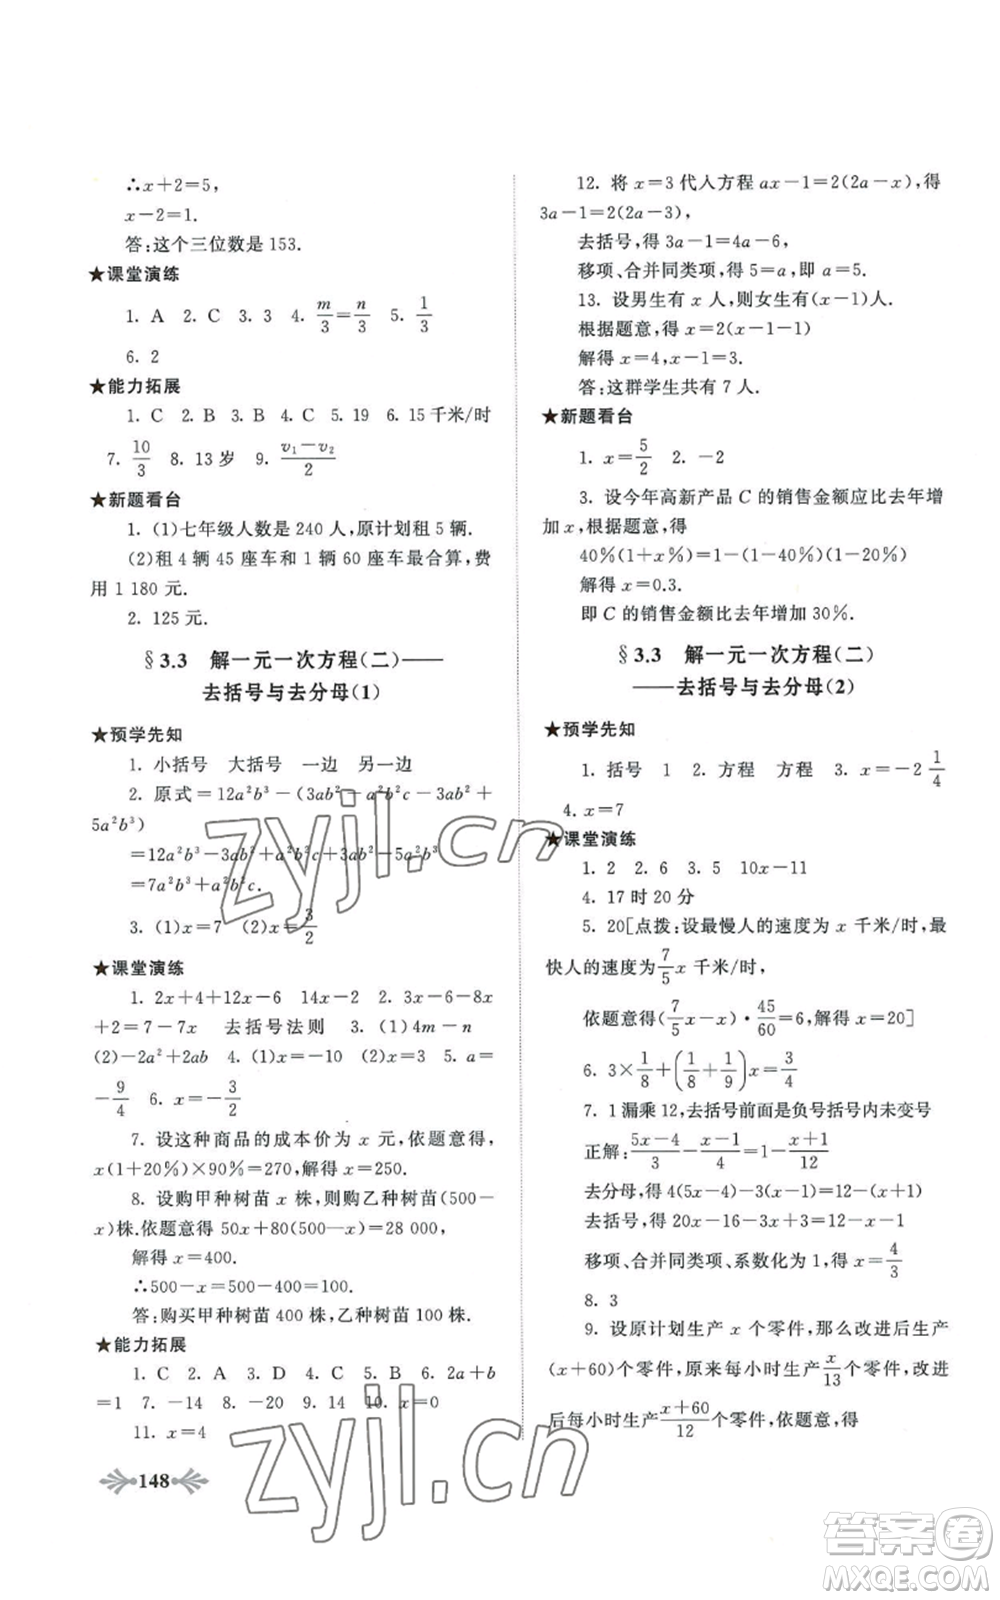 ∴x＋2＝5，
x－2＝1.
答：这个三位数是 153.
★课堂演练
1. A　2. C　3. 3　4. m/3＝n/3　5. 1/3
6. 2
★能力拓展
1. C　2. B　3. B　4. C　5. 19　6. 15 千米/时
7. 10/3　8. 13 岁　9. (v₁－v₂)/2
★新题看台
1. (1)七年级人数是 240 人，原计划租 5 辆.
(2)租 4 辆 45 座车和 1 辆 60 座车最合算，费
用 1 180 元.
2. 125 元.
§3.3　解一元一次方程（二）——
去括号与去分母（1）
★预学先知
1. 小括号　大括号　一边　另一边
2. 原式＝12a²b³－(3ab²＋a²b²c－4ab²＋
5a²b³)
＝12a²b³－3ab²＋a²b²c＋3ab²－5a²b³
＝7a²b³＋a²b²c.
3. (1)x＝7　(2)x＝3/2
★课堂演练
1. 2x＋4＋12x－6　14x－2　2. 3x－6－8x
＋2＝7－7x　去括号法则　3. (1)4m－n
(2)－2a²＋2ab　4. (1)x＝－10　(2)x＝6　5. a＝
－9/4　6. x＝－3/2
7. 设这种商品的成本价为 x 元，依题意得，
x(1＋20%)×90%＝270，解得 x＝250.
8. 设购甲种树苗 x 株，则购乙种树苗(500－
x)株.依题意得 50x＋80(500—x)＝28 000，
解得 x＝400.
∴500－x＝500－400＝100.
答：购买甲种树苗 400 株，乙种树苗 100 株.
★能力拓展
1. C　2. A　3. D　4. C　5. B　6. 2a＋b
＝1　7. －14　8. －20　9. 22　10. x＝0
11. x＝4
148
12. 将 x＝3 代人方程 ax－1＝2(2a－x)，得
3a－1＝2(2a－3)，
去括号，得 3a－1＝4a－6，
移项、合并同类项，得 5＝a，即 a＝5.
13. 设男生有 x 人，则女生有(x－1)人.
根据题意，得 x＝2(x－1－1)
解得 x＝4，x－1＝3.
答：这群学生共有 7 人.
★新题看台
1. x＝5/2　2. －2
3. 设今年高新产品 C 的销售金额应比去年增
加 x，根据题意，得
40%(1＋x%)＝1－(1－40%)(1－20%)
解得 x＝0.3.
即 C 的销售金额比去年增加 30%.
§3.3　解一元一次方程（二）
——去括号与去分母（2）
★预学先知
1. 括号　1　2. 方程　方程　3. x＝－2 1/4
4. x＝7
★课堂演练
1. 2　2. 6　3. 5　10x－11
4. 17 时 20 分
5. 20[点拨：设最慢人的速度为 x 千米/时，最
快人的速度为7/5x 千米/时，
依题意得(7/5x－x)·45/60＝6，解得 x＝20]
6. 3×1/8＋(1/8＋1/9)x＝3/4
7. 1 漏乘 12，去括号前面是负号括号内未变号
正解：(5x－4)/3－(x－1)/4＝1－(x＋1)/12
去分母，得 4(5x－4)－3(x－1)＝12－(x＋1)
去括号，得 20x－16－3x＋3＝12－x－1
移项、合并同类项、系数化为 1，得 x＝4/3
8. 3
9. 设原计划生产 x 个零件，那么改进后生产
(x＋60)个零件，原来每小时生产x/13个零件，改进
后每小时生产(x＋60)/12个零件，依题意，得
zyjl.cn
zyjl.cn
答案卷
MXQE.COM